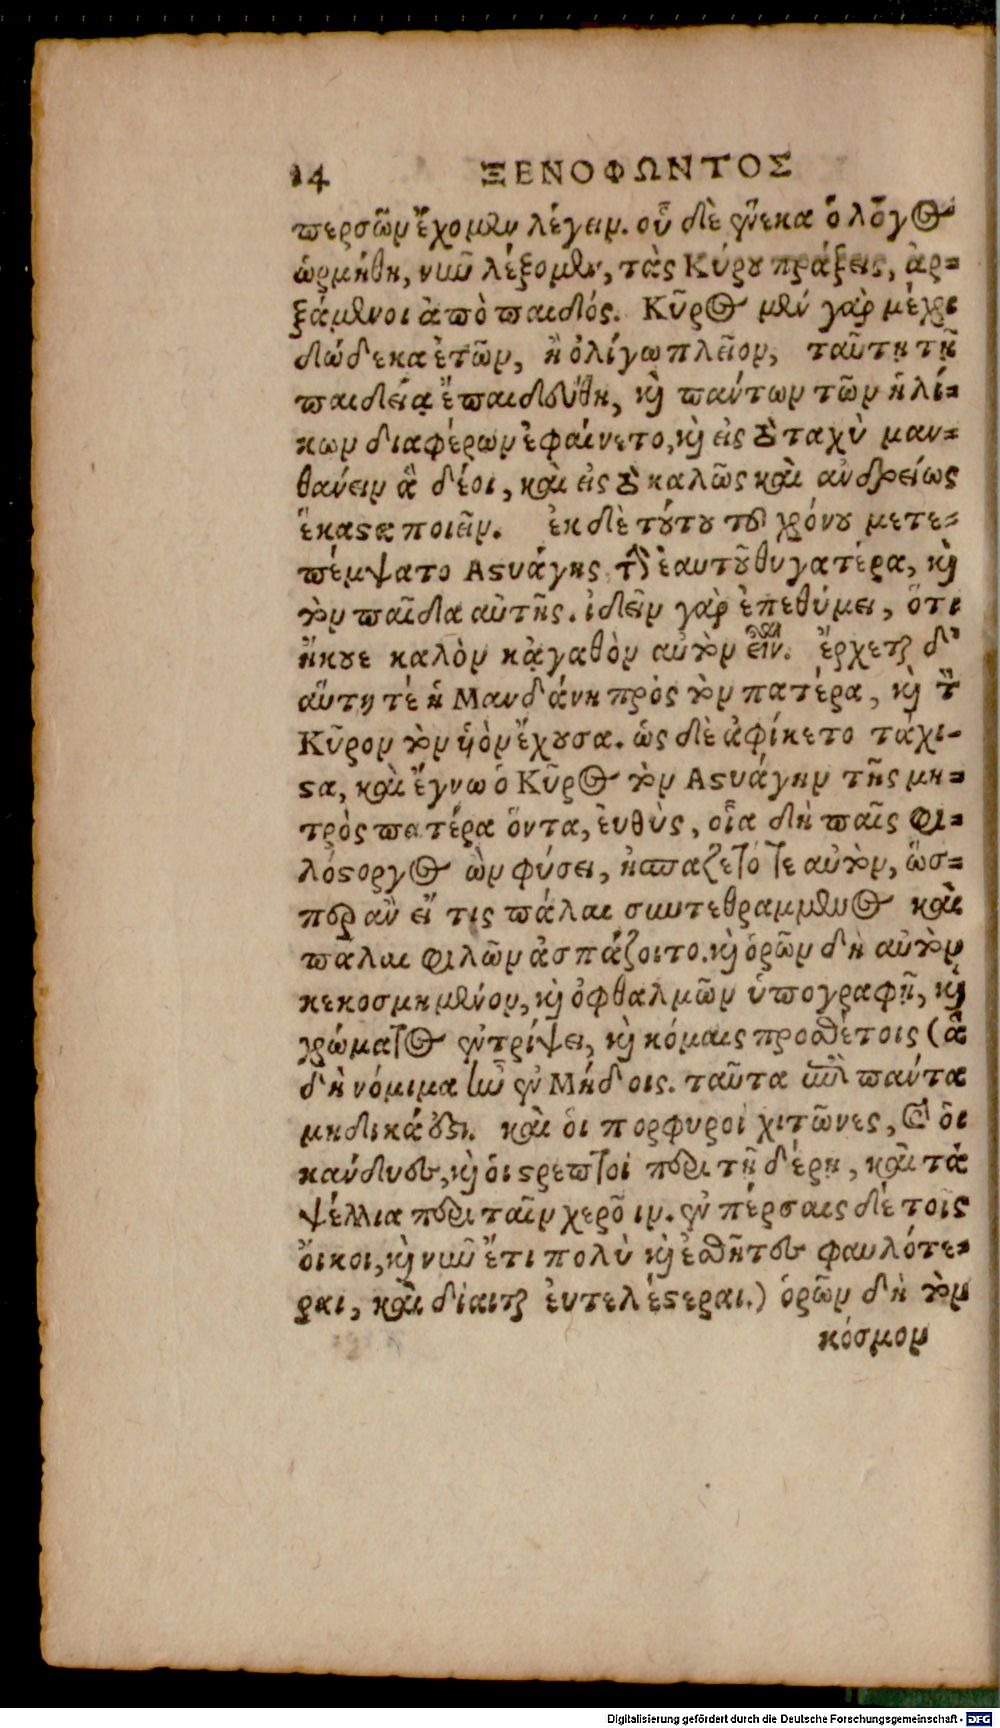 14 ΞΕΝΟΦΩΝΤΟΣ
περσῶν ἔχομεν λέγειν. οὗ δὲ ἕνεκα ὁ λόγος
ὡρμήθη, νῦν λέξομεν, τὰς Κύρου πράξεις, ἀρ=
ξάμενοι ἀπὸ παιδός. Κῦρος μὲν γὰρ μέχρι
δώδεκα ἐτῶν, ἢ ὀλίγω πλεῖον, ταύτῃ τῇ
παιδείᾳ ἐπαιδεύθη, καὶ πάντων τῶν ἡλί=
κων διαφέρων ἐφαίνετο, καὶ εἰς τὸ ταχὺ μαν=
θάνειν ἃ δέοι, καὶ εἰς τὸ καλῶς καὶ ἀνδρείως
ἕκαστα ποιεῖν. ἐκ δὲ τούτου τοῦ χρόνου μετε=
πέμψατο Αστυάγης τὴν ἑαυτοῦ θυγατέρα, καὶ
τὸν παῖδα αὐτῆς. ἰδεῖν γὰρ ἐπεθύμει, ὅτι
ἤκουε καλὸν κἀγαθὸν αὐτὸν εἶναι. ἔρχεται δ'
αὕτη τὲ ἡ Μανδάνη πρὸς τὸν πατέρα, καὶ τὸν
Κῦρον τὸν ὑὸν ἔχουσα. ὡς δὲ ἀφίκετο τάχι-
στα, καὶ ἔγνω ὁ Κῦρος τὸν Αστυάγην τῆς μη=
τρὸς πατέρα ὄντα, ἐυθὺς, οἷα δὴ παῖς φι=
λόστοργος ὢν φύσει, ἠσπάζετό τε αὐτὸν, ὥσ=
περ ἂν εἴ τις πάλαι συντεθραμμένος καὶ
πάλαι φιλῶν ἀσπάζοιτο. καὶ ὁρῶν δὴ αὐτὸν
κεκοσμημένον, καὶ ὀφθαλμῶν ὑπογραφῇ, καὶ
χρώματος ἐντρίψει, καὶ κόμαις προσθέτοις (ἃ
δὴ νόμιμα ἦν ἐν Μήδοις. ταῦτα γὰρ πάντα
μηδικά ἐστι. καὶ ὁι πορφυροῖ χιτῶνες, καὶ ὁι
κάνδυες, καὶ ὁι στρεπτοὶ περὶ τῇ δέρῃ, καὶ τὰ
ψέλλια περὶ ταῖν χεροῖν. ἐν πέρσαις δὲ τοῖς
ὄικοι, καὶ νῦν ἔτι πολὺ καὶ ἐσθῆτες φαυλότε=
ραι, καὶ δίαιται ἐυτελέστεραι.) ὁρῶν δὴ τὸν
κόσμον
Digitalisierung gefördert durch die Deutsche Forschungsgemeinschaft - DFG